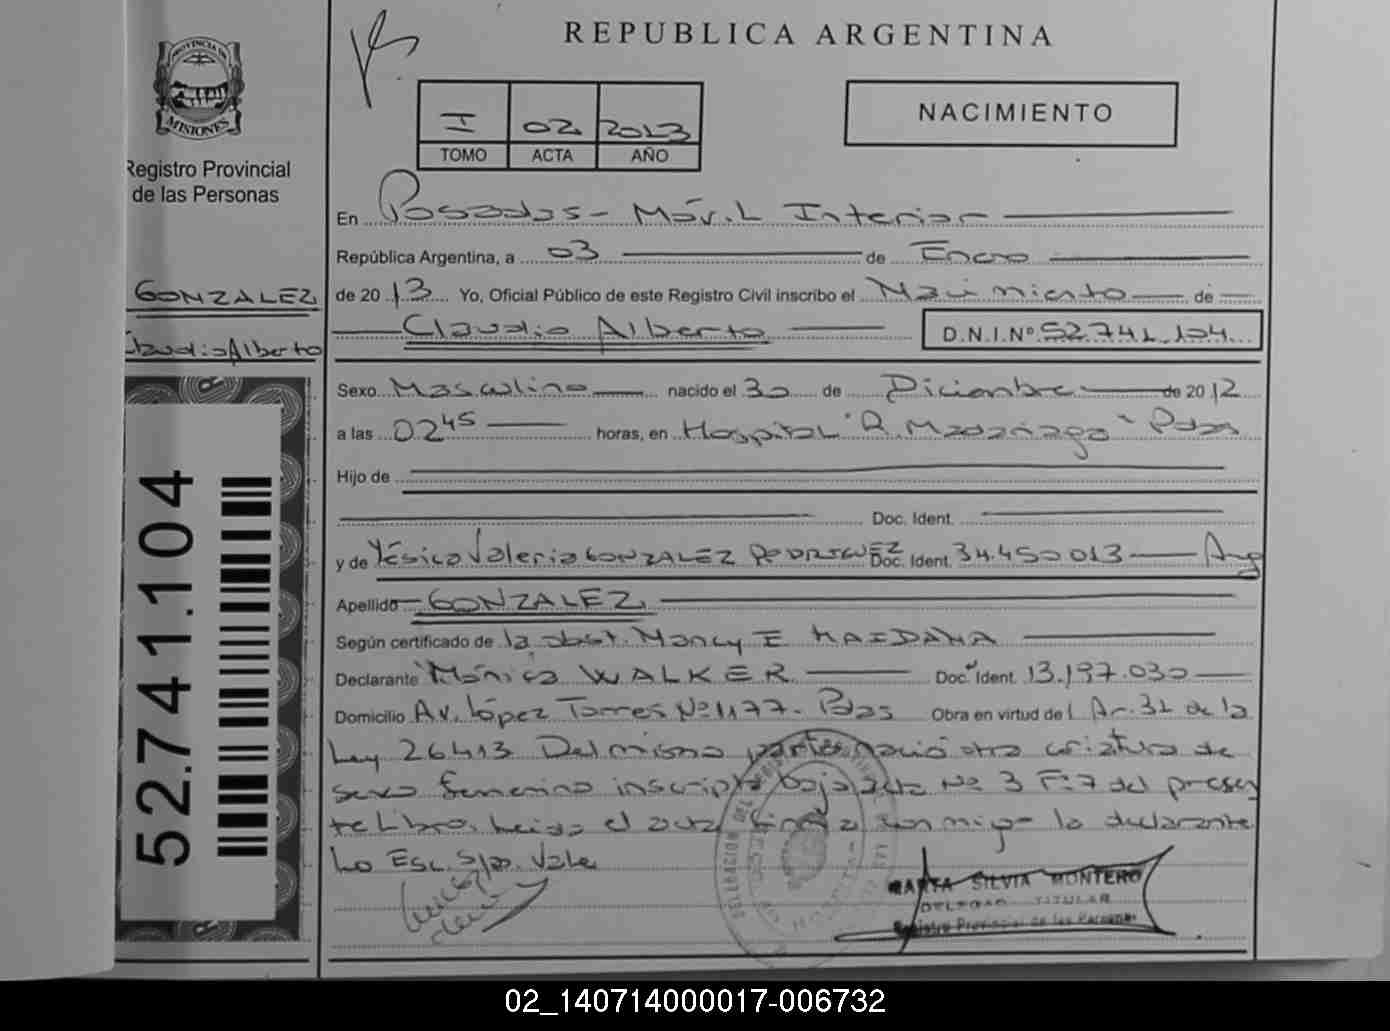 REPUBLICA ARGENTINA
PROVINCIA DE
MISIONES
Registro Provincial
de las Personas
I 02 2013
TOMO ACTA AÑO
NACIMIENTO
En Posadas - Móvil Interior
República Argentina, a 03 de Enero
de 2013 Yo, Oficial Público de este Registro Civil inscribo el Nacimiento de
Claudio Alberto D.N.I.Nº 52.741.104
GONZALEZ
Claudio Alberto
Sexo Masculino nacido el 30 de Diciembre de 2012
a las 02 45 horas, en Hospital "R. Madariaga" Pdas
Hijo de
Doc. Ident.
y de Yésica Valeria GONZALEZ RODRIGUEZ Doc. Ident. 34.450.013 Arg
Apellido GONZALEZ
Según certificado de la obst. Nancy E MAIDANA
Declarante Mónica WALKER Doc. Ident. 13.197.030
Domicilio Av. López Torres Nº 1177 - Pdas Obra en virtud del Ar. 31 de la
Ley 26413 Del mismo parto nació otra criatura de
sexo femenino inscripta bajo acta Nº 3 Fº 7 del presen
te Libro. Leida el acta firma conmigo la declarante
Lo Esc. S/p. Vale
MARTA SILVIA MONTERO
DELEGAD TITULAR
Registro Provincial de las Personas
52.741.104
02_140714000017-006732